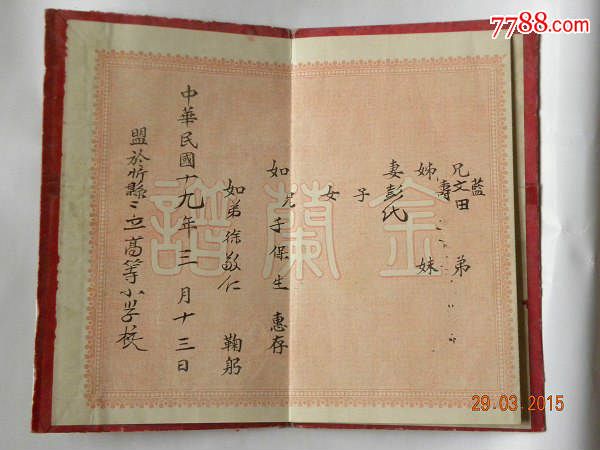 7788.com
金蘭譜
兄 藍田 弟
文
姊 壽 妹
妻 彭氏
子
女
如兄手保生 惠存
如弟徐敬仁 鞠躬
中華民國十九年三月十三日
盟於忻縣縣立高等小學校
29.03.2015